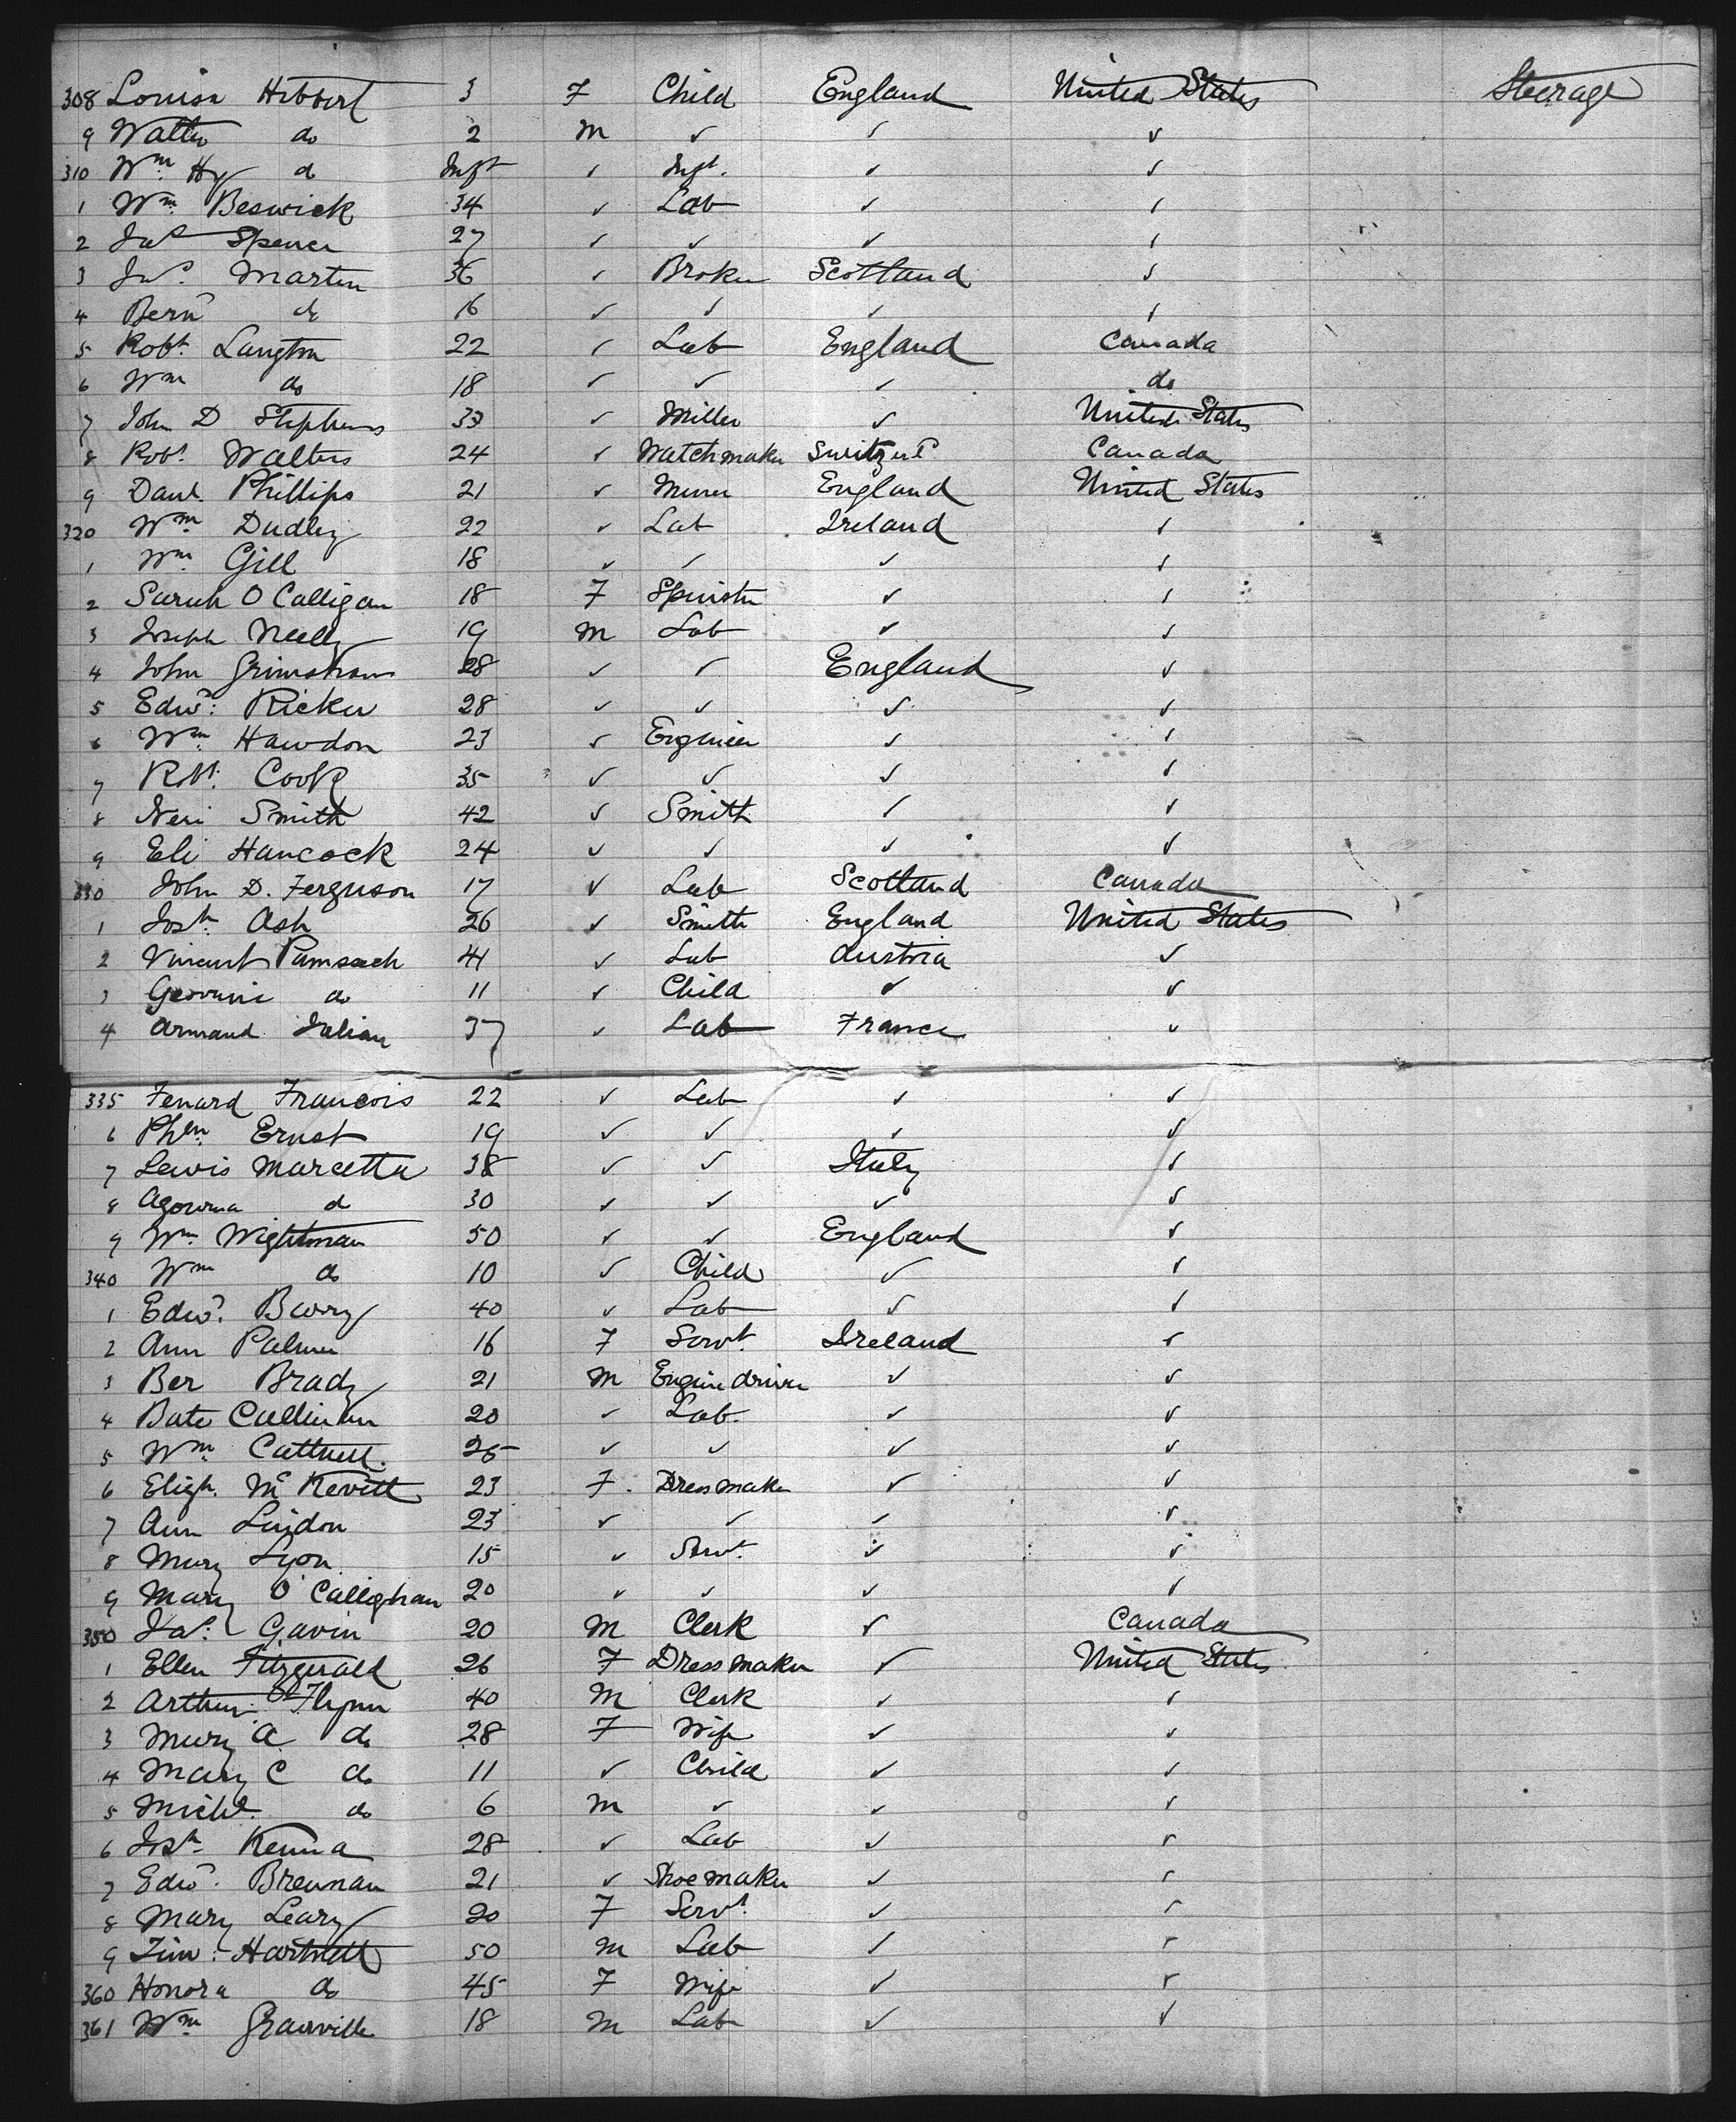 308 Louisa Hibbert 3 F Child England United States Steerage
9 Walter do 2 M ✓ ✓ ✓
310 Wm Hy do Inft ✓ Inft. ✓ ✓
1 Wm Beswick 34 ✓ Lab ✓ ✓
2 Jas Spencer 27 ✓ ✓ ✓ ✓
3 Jno. Martin 36 ✓ Broker Scotland ✓
4 Bernd do 16 ✓ ✓ ✓ ✓
5 Robt. Langton 22 ✓ Lab England Canada
6 Wm do 18 ✓ ✓ ✓ do
7 John D Stephens 33 ✓ Miller ✓ United States
8 Robt. Walters 24 ✓ Watchmaker Switzerld Canada
9 Danl. Phillips 21 ✓ Miner England United States
320 Wm Dudley 22 ✓ Lab Ireland ✓
1 Wm Gill 18 ✓ ✓ ✓ ✓
2 Sarah O Calligan 18 F Spinster ✓ ✓
3 Joseph Neelly 19 M Lab ✓ ✓
4 John Grimshaw 28 ✓ ✓ England ✓
5 Edwd. Ricker 28 ✓ ✓ ✓ ✓
6 Wm Hawdon 23 ✓ Engineer ✓ ✓
7 Robt. Cook 35 ✓ ✓ ✓ ✓
8 Neri Smith 42 ✓ Smith ✓ ✓
9 Eli Hancock 24 ✓ ✓ ✓ ✓
330 John D. Ferguson 17 ✓ Lab Scotland Canada
1 Josh. Ash 26 ✓ Smith England United States
2 Vincent Pamsach 41 ✓ Lab Austria ✓
3 Geovani do 11 ✓ Child ✓ ✓
4 Armand Julian 37 ✓ Lab France ✓
335 Fenard Francois 22 ✓ Lab ✓ ✓
6 Phln. Ernst 19 ✓ ✓ ✓ ✓
7 Lewis Marcetta 38 ✓ ✓ Italy ✓
8 do 30 ✓ ✓ ✓ ✓
9 Wm Wightman 50 ✓ ✓ England ✓
340 Wm do 10 ✓ Child ✓ ✓
1 Edwd. Barry 40 ✓ Lab ✓ ✓
2 Ann Palmer 16 F Servt. Ireland ✓
3 Ber Brady 21 M Engine driver ✓ ✓
4 Bate Callinan 20 ✓ Lab. ✓ ✓
5 Wm Cattnell. 25 ✓ ✓ ✓ ✓
6 Elizh. McKevitt 23 F. Dressmaker ✓ ✓
7 Ann Lindon 23 ✓ ✓ ✓ ✓
8 Mary Lyon 15 ✓ Servt. ✓ ✓
9 Mary O'Callighan 20 ✓ ✓ ✓ ✓
350 Jas. Gavin 20 M Clerk ✓ Canada
1 Ellen Fitzgerald 26 F Dressmaker ✓ United States
2 Arthur O'Flynn 40 M Clerk ✓ ✓
3 Mary A do 28 F Wife ✓ ✓
4 Mary C do 11 ✓ Child ✓ ✓
5 Michl. do 6 M ✓ ✓ ✓
6 Josh Kenna 28 ✓ Lab ✓ ✓
7 Edwd. Brennan 21 ✓ Shoemaker ✓ ✓
8 Mary Leary 20 F Servt. ✓ ✓
9 Tim: Hartnett 50 M Lab ✓ ✓
360 Honora do 45 F Wife ✓ ✓
361 Wm Granville 18 M Lab ✓ ✓